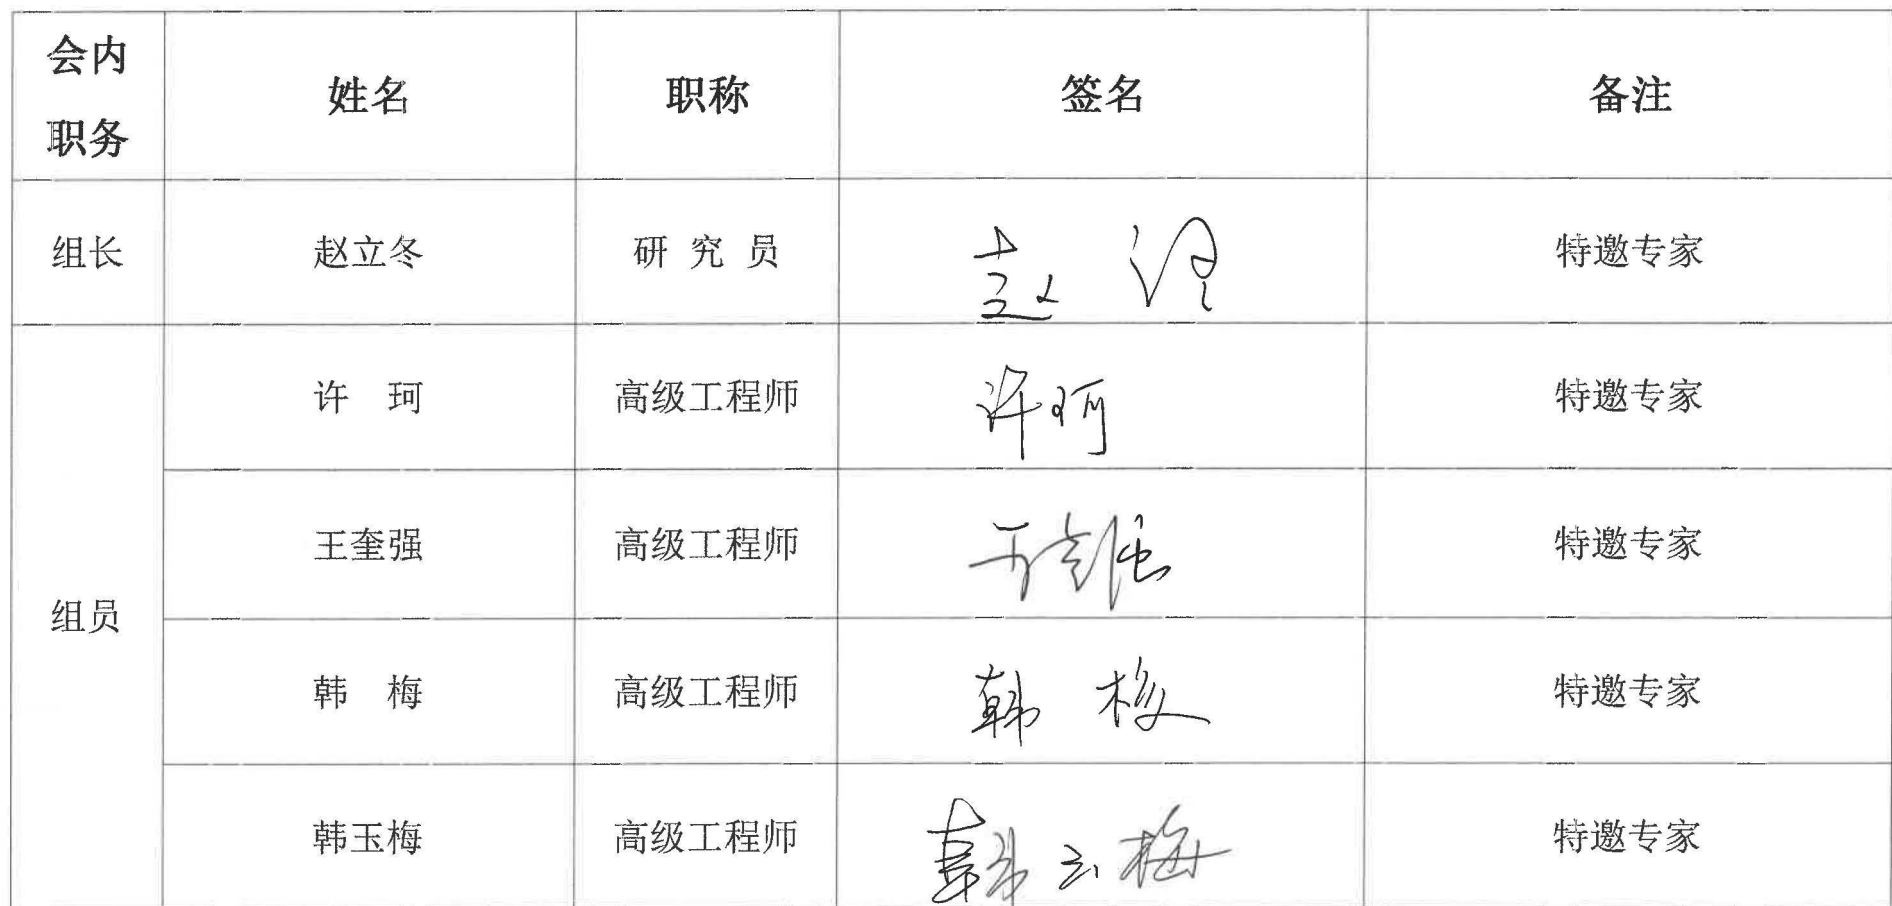 会内职务 姓名 职称 签名 备注
组长 赵立冬 研究员 特邀专家
组员 许 珂 高级工程师 许珂 特邀专家
王奎强 高级工程师 王奎强 特邀专家
韩 梅 高级工程师 韩 梅 特邀专家
韩玉梅 高级工程师 韩玉梅 特邀专家